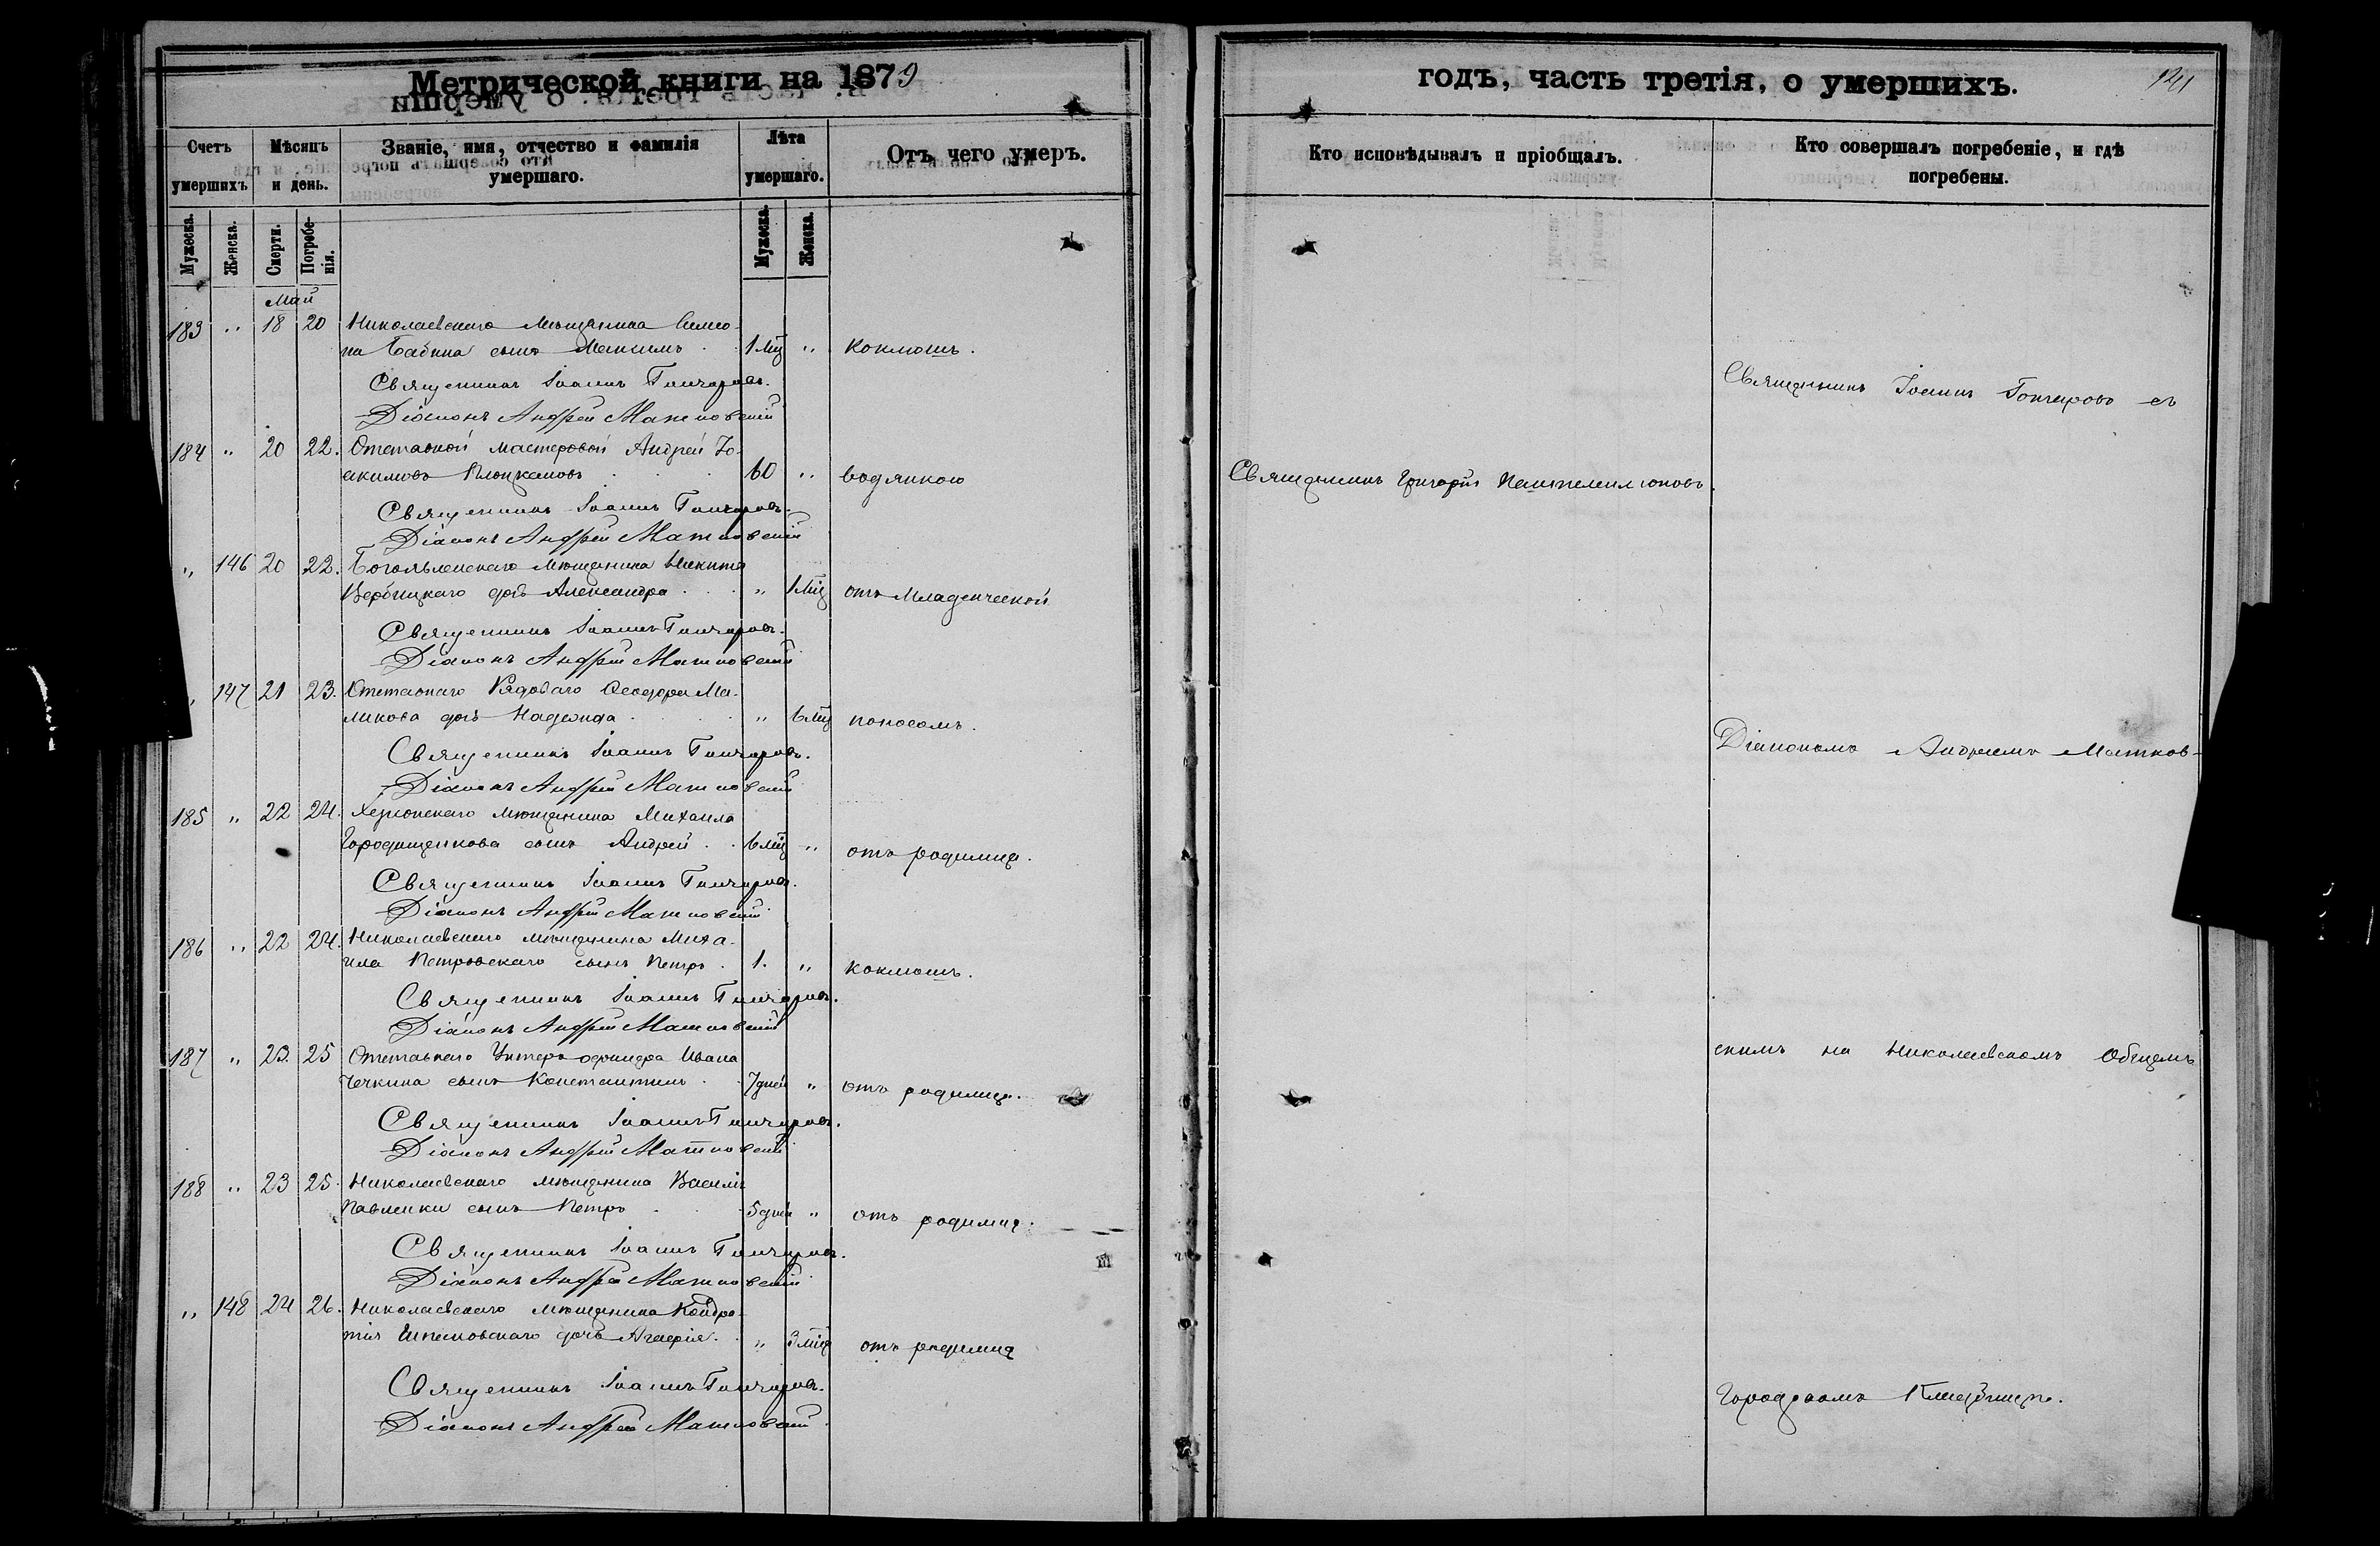 Метрической книги на 1879
Счетъ умершихъ
Мѣсяцъ и день.
Званіе, имя, отчество и фамилія умершаго.
Лѣта умершаго.
Отъ чего умеръ.
Мужеска.
Женска.
Смерти.
Погребенія.
Мужеска.
Женска.
Май
183 " 18 20 Николаевскаго мѣщанина Симео-
на Бабина сынъ Максимъ . 1 мц " коклюшъ.
Священникъ Іоаннъ Гончаровъ.
Діаконъ Андрей Матковскій
184 " 20 22. Отставной мастеровой Андрей Іо-
акимовъ 60 " водянкою
Священникъ Іоаннъ Гончаровъ.
Діаконъ Андрей Матковскій
" 146 20 22. Богоявленскаго мѣщанина Никиты
Вербицкаго дочь Александра . . . " 1 мц отъ младенческой
Священникъ Іоаннъ Гончаровъ.
Діаконъ Андрей Матковскій
" 147 21 23. Отставнаго Рядоваго Ѳеодора Ма-
ликова дочь Надежда . . . . " 6 мц поносомъ.
Священникъ Іоаннъ Гончаровъ.
Діаконъ Андрей Матковскій
185 " 22 24. Херсонскаго мѣщанина Михаила
Городищенкова сынъ Андрей . . 6 мц " отъ родимца.
Священникъ Іоаннъ Гончаровъ.
Діаконъ Андрей Матковскій
186 " 22 24. Николаевскаго мѣщанина Миха-
ила Петровскаго сынъ Петръ . 1. " коклюшъ.
Священникъ Іоаннъ Гончаровъ.
Діаконъ Андрей Матковскій
187 " 23. 25 Отставнаго Унтеръ офицера Ивана
Чечкина сынъ Константинъ . . 7 дней " отъ родимца.
Священникъ Іоаннъ Гончаровъ.
Діаконъ Андрей Матковскій
188 " 23 25. Николаевскаго мѣщанина Василія
Павленки сынъ Петръ . . 5 дней " отъ родимца.
Священникъ Іоаннъ Гончаровъ.
Діаконъ Андрей Матковскій
" 148 24 26. Николаевскаго мѣщанина Кондра-
тія дочь . . " 3 мц отъ родимца
Священникъ Іоаннъ Гончаровъ.
Діаконъ Андрей Матковскій
годъ, часть третія, о умершихъ. 141
Кто исповѣдывалъ и пріобщалъ.
Кто совершалъ погребеніе, и гдѣ погребены.
Священникъ Іоаннъ Гончаровъ съ
Священникъ Григорій Пантелеимоновъ.
Діакономъ Андреемъ Матков-
скимъ на Николаевскомъ Общемъ
Городскомъ Кладбищѣ.